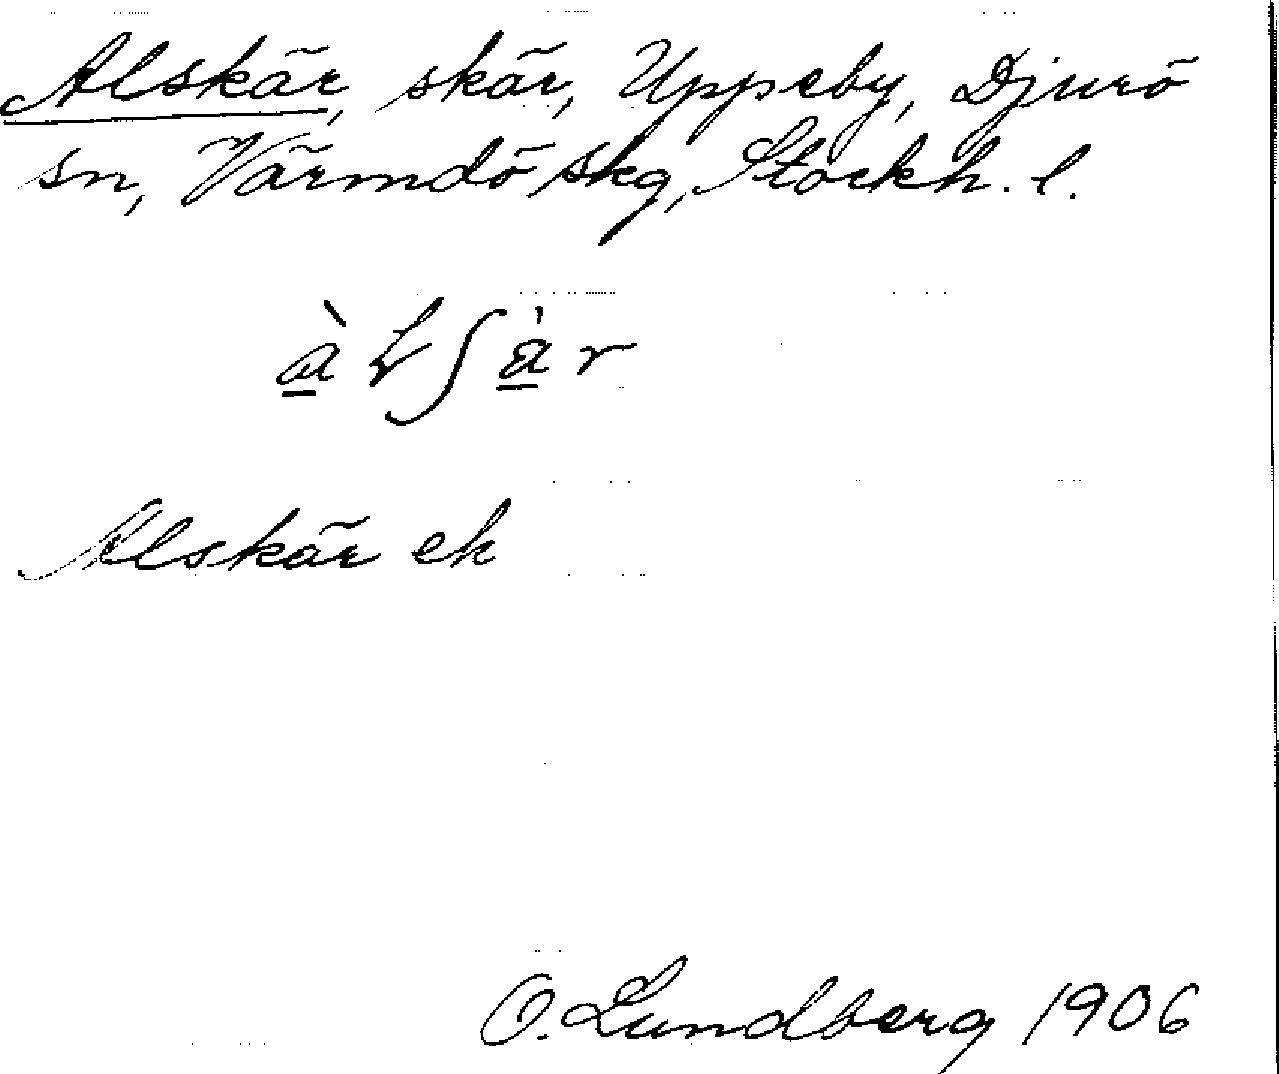 Alskär, skär, Uppeby, Djurö
sn, Värmdö skg, Stockh. l.
Alskär ek
O. Lundberg 1906